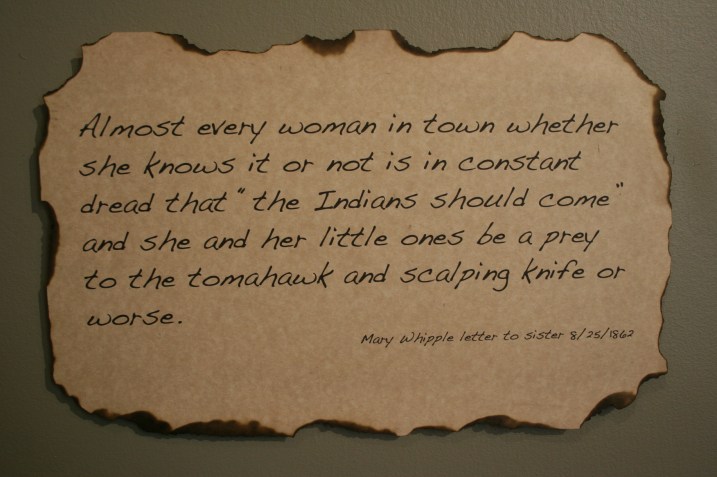 Almost every woman in town whether
she knows it or not is in constant
dread that "the Indians should come"
and she and her little ones be a prey
to the tomahawk and scalping knife or
worse.
Mary Whipple letter to sister 8/25/1862